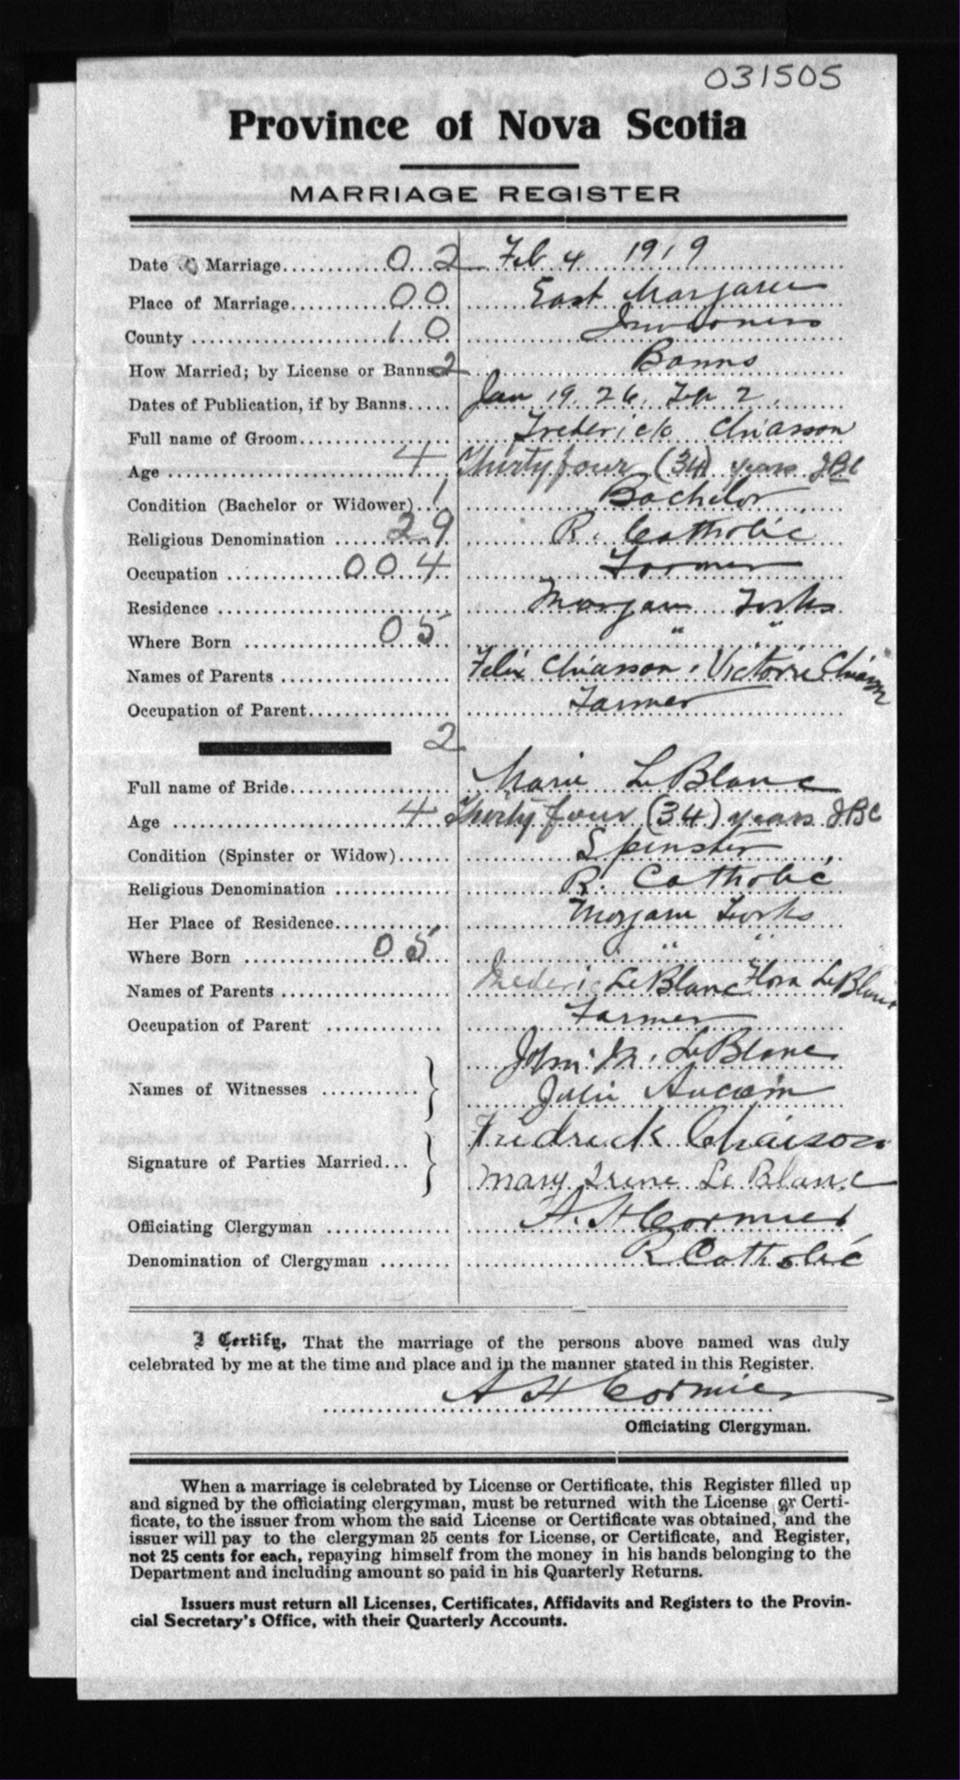 031505
Province of Nova Scotia
MARRIAGE REGISTER
Date of Marriage 0 2 Feb 4 1919
Place of Marriage 00 East Margaree
County 10 Inverness
How Married; by License or Banns 2 Banns
Dates of Publication, if by Banns Jan 19. 26. Feb 2.
Full name of Groom Frederick Chiasson
Age 4 Thirty four (34) years JBC
Condition (Bachelor or Widower) 1 Bachelor
Religious Denomination 29 R. Catholic
Occupation 004 Farmer
Residence Margaree Forks
Where Born 05 " "
Names of Parents Felix Chiasson, Victorie Chiasson
Occupation of Parent Farmer
2
Full name of Bride Marie LeBlanc
Age 4 Thirty four (34) years JBC
Condition (Spinster or Widow) Spinster
Religious Denomination R. Catholic
Her Place of Residence Margaree Forks
Where Born 05 " "
Names of Parents Frederic LeBlanc Flora LeBlanc
Occupation of Parent Farmer
John M. LeBlanc
Names of Witnesses
Julie Aucoin
Fredrick Chaisson
Signature of Parties Married
Mary Irene Le Blanc
Officiating Clergyman A. H Cormier
Denomination of Clergyman R Catholic
I Certify, That the marriage of the persons above named was duly
celebrated by me at the time and place and in the manner stated in this Register.
A H Cormier
Officiating Clergyman.
When a marriage is celebrated by License or Certificate, this Register filled up
and signed by the officiating clergyman, must be returned with the License or Certi-
ficate, to the issuer from whom the said License or Certificate was obtained, and the
issuer will pay to the clergyman 25 cents for License, or Certificate, and Register,
not 25 cents for each, repaying himself from the money in his hands belonging to the
Department and including amount so paid in his Quarterly Returns.
Issuers must return all Licenses, Certificates, Affidavits and Registers to the Provin-
cial Secretary's Office, with their Quarterly Accounts.